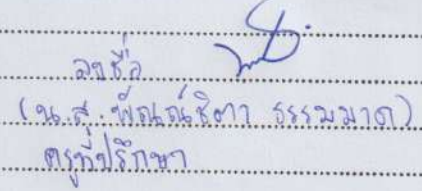 ลงชื่อ
(น.ส. พัณณ์ชิตา ธรรมมาด)
ครูที่ปรึกษา